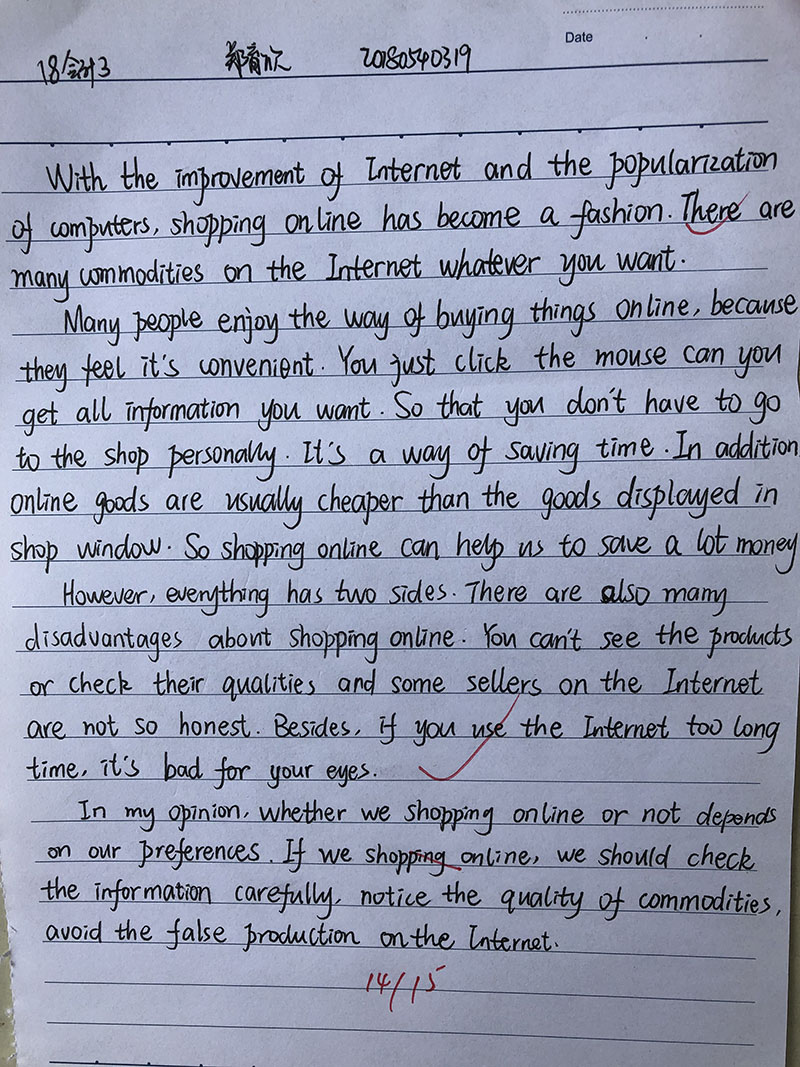 Date
18会计3 郑育欣 20180540319
With the improvement of Internet and the popularization
of computers, shopping online has become a fashion. There are
many commodities on the Internet whatever you want.
Many people enjoy the way of buying things online, because
they feel it's convenient. You just click the mouse can you
get all information you want. So that you don't have to go
to the shop personally. It's a way of saving time. In addition
online goods are usually cheaper than the goods displayed in
shop window. So shopping online can help us to save a lot money
However, everything has two sides. There are also many
disadvantages about shopping online. You can't see the products
or check their qualities and some sellers on the Internet
are not so honest. Besides, if you use the Internet too long
time, it's bad for your eyes.
In my opinion, whether we shopping online or not depends
on our preferences. If we shopping online, we should check
the information carefully, notice the quality of commodities,
avoid the false production on the Internet.
14/15